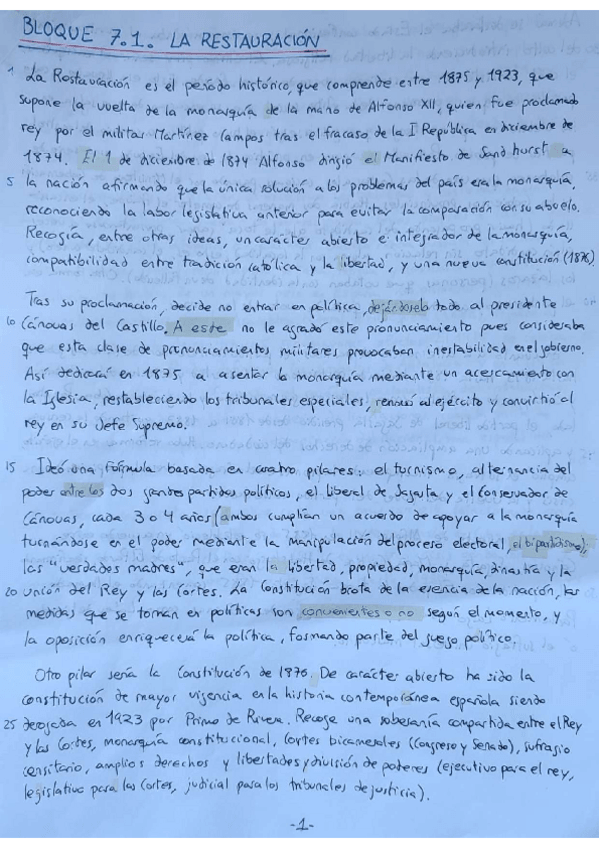 BLOQUE 7.1. LA RESTAURACIÓN
1 La Restauración es el período histórico, que comprende entre 1875 y 1923, que
supone la vuelta de la monarquía de la mano de Alfonso XII, quien fue proclamado
rey por el militar Martínez Campos tras el fracaso de la I República en diciembre de
1874. El 1 de diciembre de 1874 Alfonso dirigió el Manifiesto de Sandhurst a
5 la nación afirmando que la única solución a los problemas del país era la monarquía,
reconociendo la labor legislativa anterior para evitar la comparación con su abuelo.
Recogía, entre otras ideas, un carácter abierto e integrador de la monarquía,
compatibilidad entre tradición católica y la libertad, y una nueva constitución (1876).
Tras su proclamación, decide no entrar en política, dejándoselo todo al presidente
10 Cánovas del Castillo. A este no le agradó este pronunciamiento pues consideraba
que esta clase de pronunciamientos militares provocaban inestabilidad en el gobierno.
Así dedicará en 1875 a asentar la monarquía mediante un acercamiento con
la Iglesia, restableciendo los tribunales especiales, renovó al ejército y convirtió al
rey en su Jefe Supremo.
15 Ideó una fórmula basada en cuatro pilares: el turnismo, alternancia del
poder entre los dos grandes partidos políticos, el liberal de Sagasta y el Conservador de
Cánovas, cada 3 o 4 años (ambos cumplían un acuerdo de apoyar a la monarquía
turnándose en el poder mediante la manipulación del proceso electoral, el bipartidismo);
las "verdades madres", que eran la libertad, propiedad, monarquía, dinastía y la
20 unión del Rey y las Cortes. La Constitución brota de la esencia de la nación, las
medidas que se toman en políticas son convenientes o no según el momento, y
la oposición enriquecerá la política, formando parte del juego político.
Otro pilar sería la Constitución de 1876. De carácter abierto ha sido la
constitución de mayor vigencia en la historia contemporánea española siendo
25 derogada en 1923 por Primo de Rivera. Recoge una soberanía compartida entre el Rey
y las Cortes, monarquía constitucional, Cortes bicamerales (Congreso y Senado), sufragio
censitario, amplios derechos y libertades y división de poderes (ejecutivo para el rey,
legislativo para las Cortes, judicial para los tribunales de justicia).
-1-